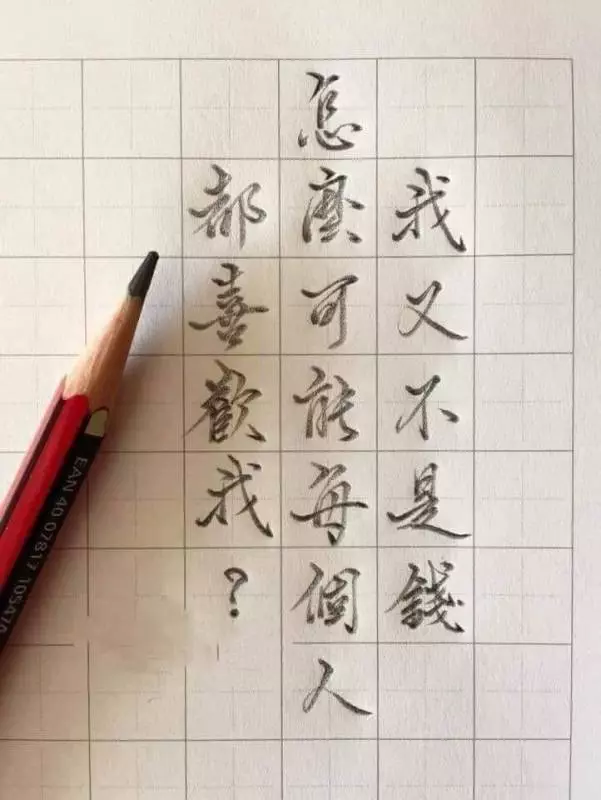 我又不是錢
怎麼可能每個人
都喜歡我？
EAN 40 07817 10547